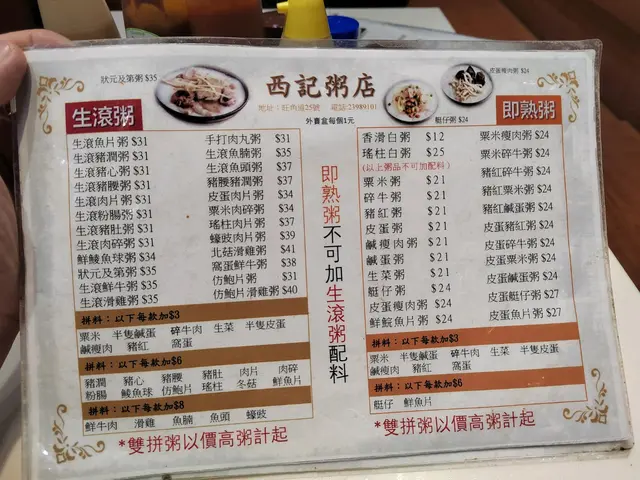 狀元及第粥 $35
西記粥店
皮蛋瘦肉粥 $24
地址：旺角道25號 電話:23989101
外賣盒每個1元
艇仔粥 $24
生滾粥
生滾魚片粥 $31
生滾豬潤粥 $31
生滾豬心粥 $31
生滾豬腰粥 $31
生滾肉片粥 $31
生滾粉腸粥 $31
生滾豬肚粥 $31
生滾肉碎粥 $31
鮮鯪魚球粥 $34
狀元及第粥 $35
生滾鮮牛粥 $35
生滾滑雞粥 $35
手打肉丸粥 $31
生滾魚腩粥 $35
生滾魚頭粥 $37
豬腰豬潤粥 $37
皮蛋肉片粥 $34
粟米肉碎粥 $34
瑤柱肉片粥 $37
蠔豉肉片粥 $39
北菇滑雞粥 $41
窩蛋鮮牛粥 $38
仿鮑片粥 $31
仿鮑片滑雞粥 $40
拼料：以下每款加$3
粟米 半隻鹹蛋 碎牛肉 生菜 半隻皮蛋
鹹瘦肉 豬紅 窩蛋
拼料：以下每款加$6
豬潤 豬心 豬腰 豬肚 肉片 肉碎
粉腸 鯪魚球 仿鮑片 瑤柱 冬菇 鮮魚片
拼料：以下每款加$8
鮮牛肉 滑雞 魚腩 魚頭 蠔豉
*雙拼粥以價高粥計起
即熟粥不可加生滾粥配料
即熟粥
香滑白粥 $12
瑤柱白粥 $25
(以上粥品不可加配料)
粟米粥 $21
碎牛粥 $21
豬紅粥 $21
皮蛋粥 $21
鹹瘦肉粥 $21
鹹蛋粥 $21
生菜粥 $21
艇仔粥 $24
皮蛋瘦肉粥 $24
鮮鯇魚片粥 $24
粟米瘦肉粥 $24
粟米碎牛粥 $24
豬紅碎牛粥 $24
豬紅粟米粥 $24
豬紅鹹蛋粥 $24
皮蛋豬紅粥 $24
皮蛋碎牛粥 $24
皮蛋粟米粥 $24
皮蛋鹹蛋粥 $24
皮蛋艇仔粥 $27
皮蛋魚片粥 $27
拼料：以下每款加$3
粟米 半隻鹹蛋 碎牛肉 生菜 半隻皮蛋
鹹瘦肉 豬紅 窩蛋
拼料：以下每款加$6
艇仔 鮮魚片
*雙拼粥以價高粥計起